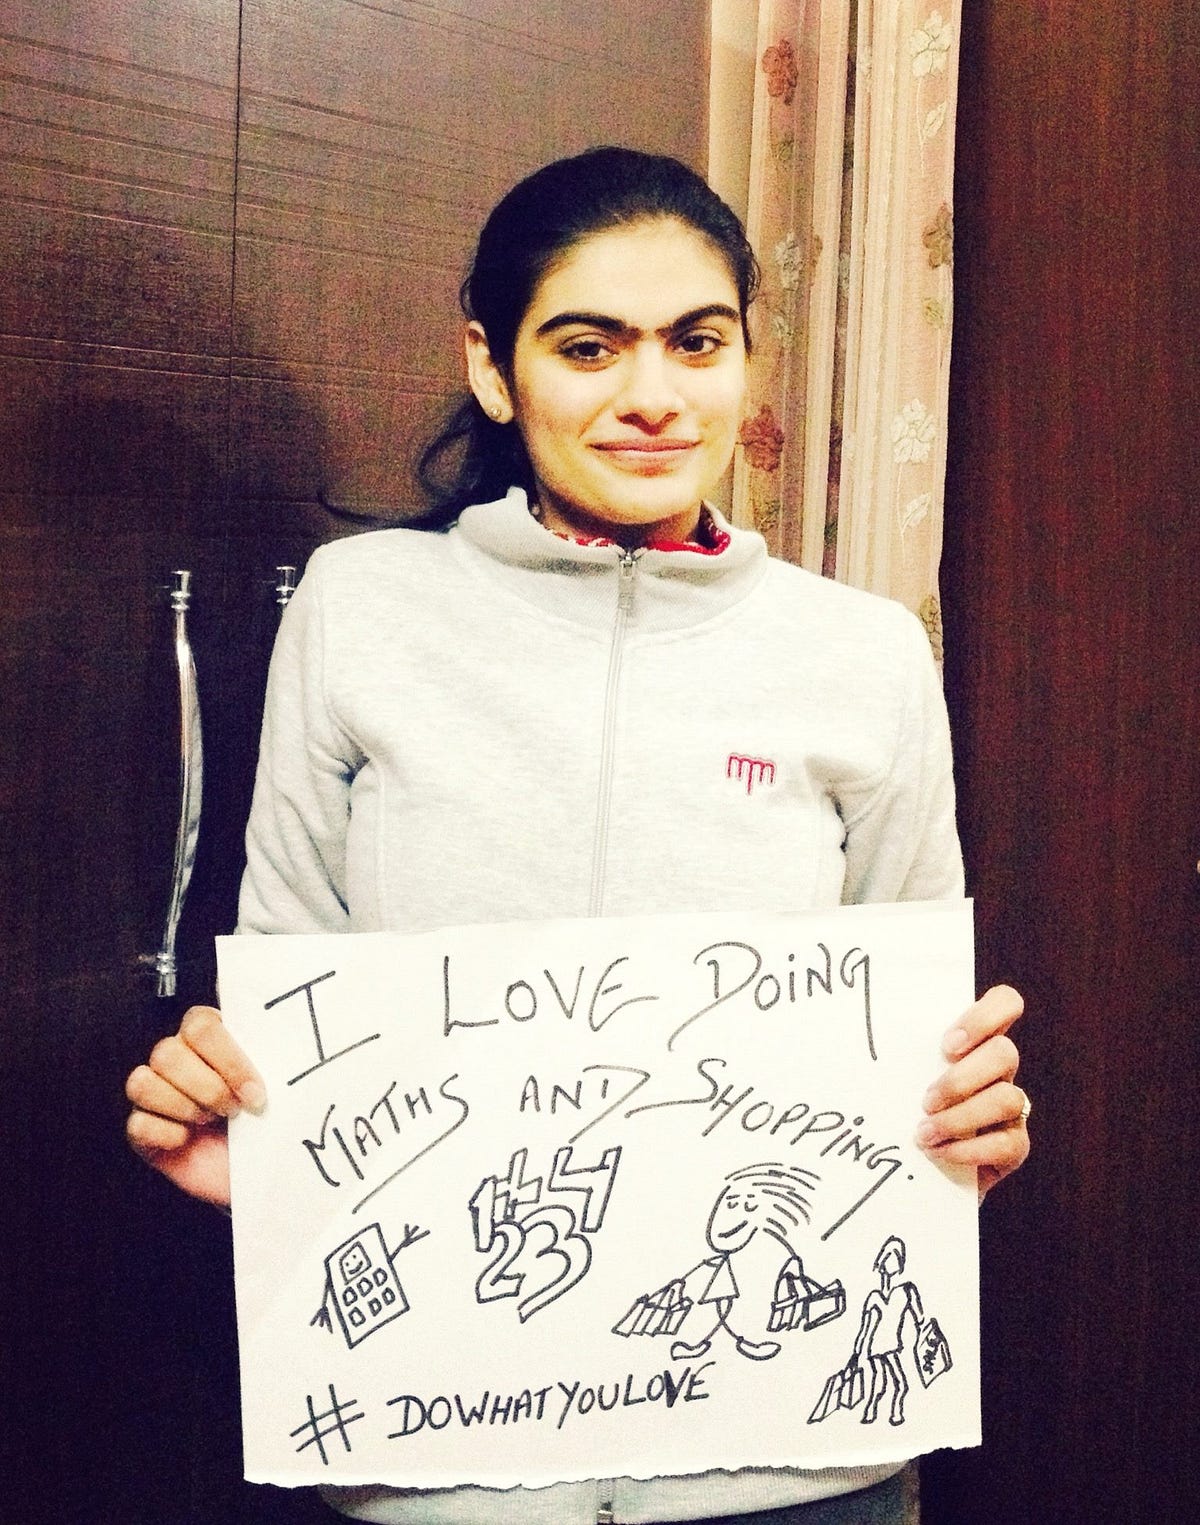 I LOVE DOiNG
MATHS AND SHOPPiNG.
1 4
2 3
# DOWHATYOULOVE